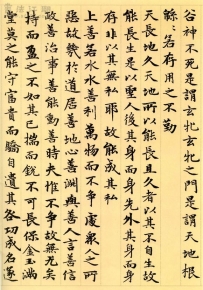 谷神不死是謂玄牝玄牝之門是謂天地根
緜緜若存用之不勤
天長地久天地所以能長且久者以其不自生故
能長生是以聖人後其身而身先外其身而身
存非以其無私耶故能成其私
上善若水水善利萬物而不爭處衆人之所
惡故幾於道居善地心善淵與善人言善信
政善治事善能動善時夫惟不爭故無尤矣
持而盈之不如其已揣而銳不可長保金玉滿
堂莫之能守富貴而驕自遺其咎功成名遂